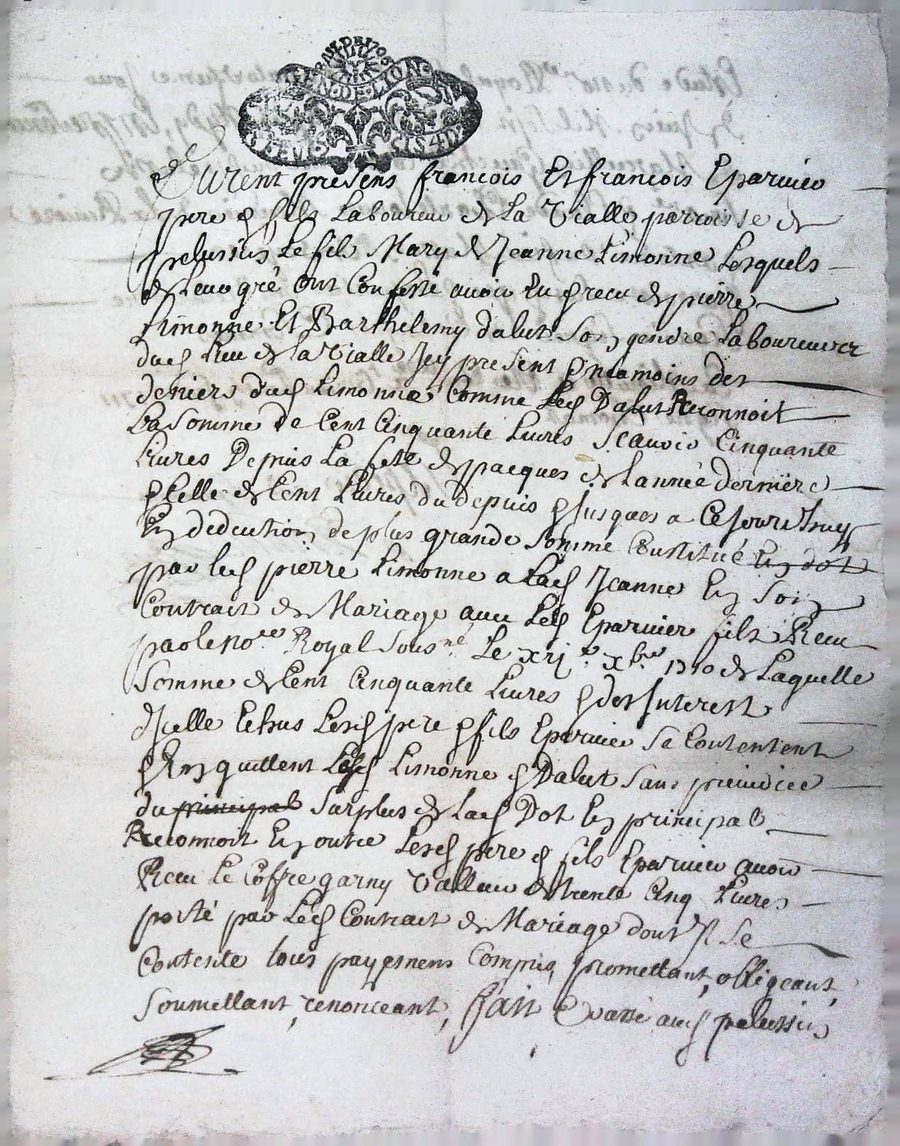 GEN. DE LION
SIX DEN. LE F.
Furent presens françois Et françois Eparvier
pere & fils Laboureur de La Vialle parroisse de
pelussins Le fils Mary de Jeanne Limonne Lesquels
de Leur gré ont Confessé avoir Eu & receu de pierre
Limonne Et Barthelemy dalut son gendre Laboureur
dud Lieu de La Vialle Icy present & neamoins des
deniers dud Limonne Comme Led Dalut Reconnoit
La somme de Cent Cinquante Livres scavoir Cinquante
Livres Depuis La fete de pacques de Lannée derniere
& Celle de Cent Livres du depuis & jusques a Cejourdhuy
En deduction de plus grande somme Constitué En dot
par led pierre Limonne a Lad Jeanne En son
Contrait de Mariage avec Led Eparvier fils Receu
par le no.re Royal sous.né Le xbre 1710 de Laquelle
somme de Cent Cinquante Livres & des Interest
dicelle Echus Lesd pere & fils Eparvier se Contentent
& En quittent Lesd Limonne & Dalut sans prejudice
du principal surplus de Lad Dot En principal
Reconnoit En outre Lesd pere & fils Eparvier avoir
Receu Le Coffre garny Valleur de trente Cinq Livres
porté par Led Contrait de Mariage dont Il se
Contente tous payemens Compris promettant, obligeant,
soumettant, renonceant, fait & passé aud pelussins